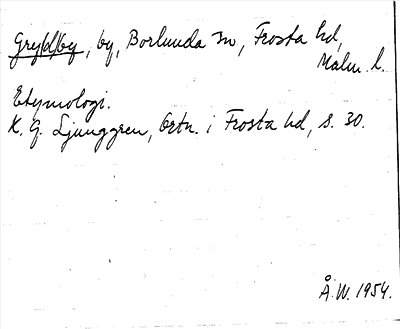 Gry(d)by, by, Borlunda sn, Frosta hd,
Malm. l.
Etymologi.
K. G. Ljunggren, Ortn. i Frosta hd, s. 30.
Å.W. 1954.